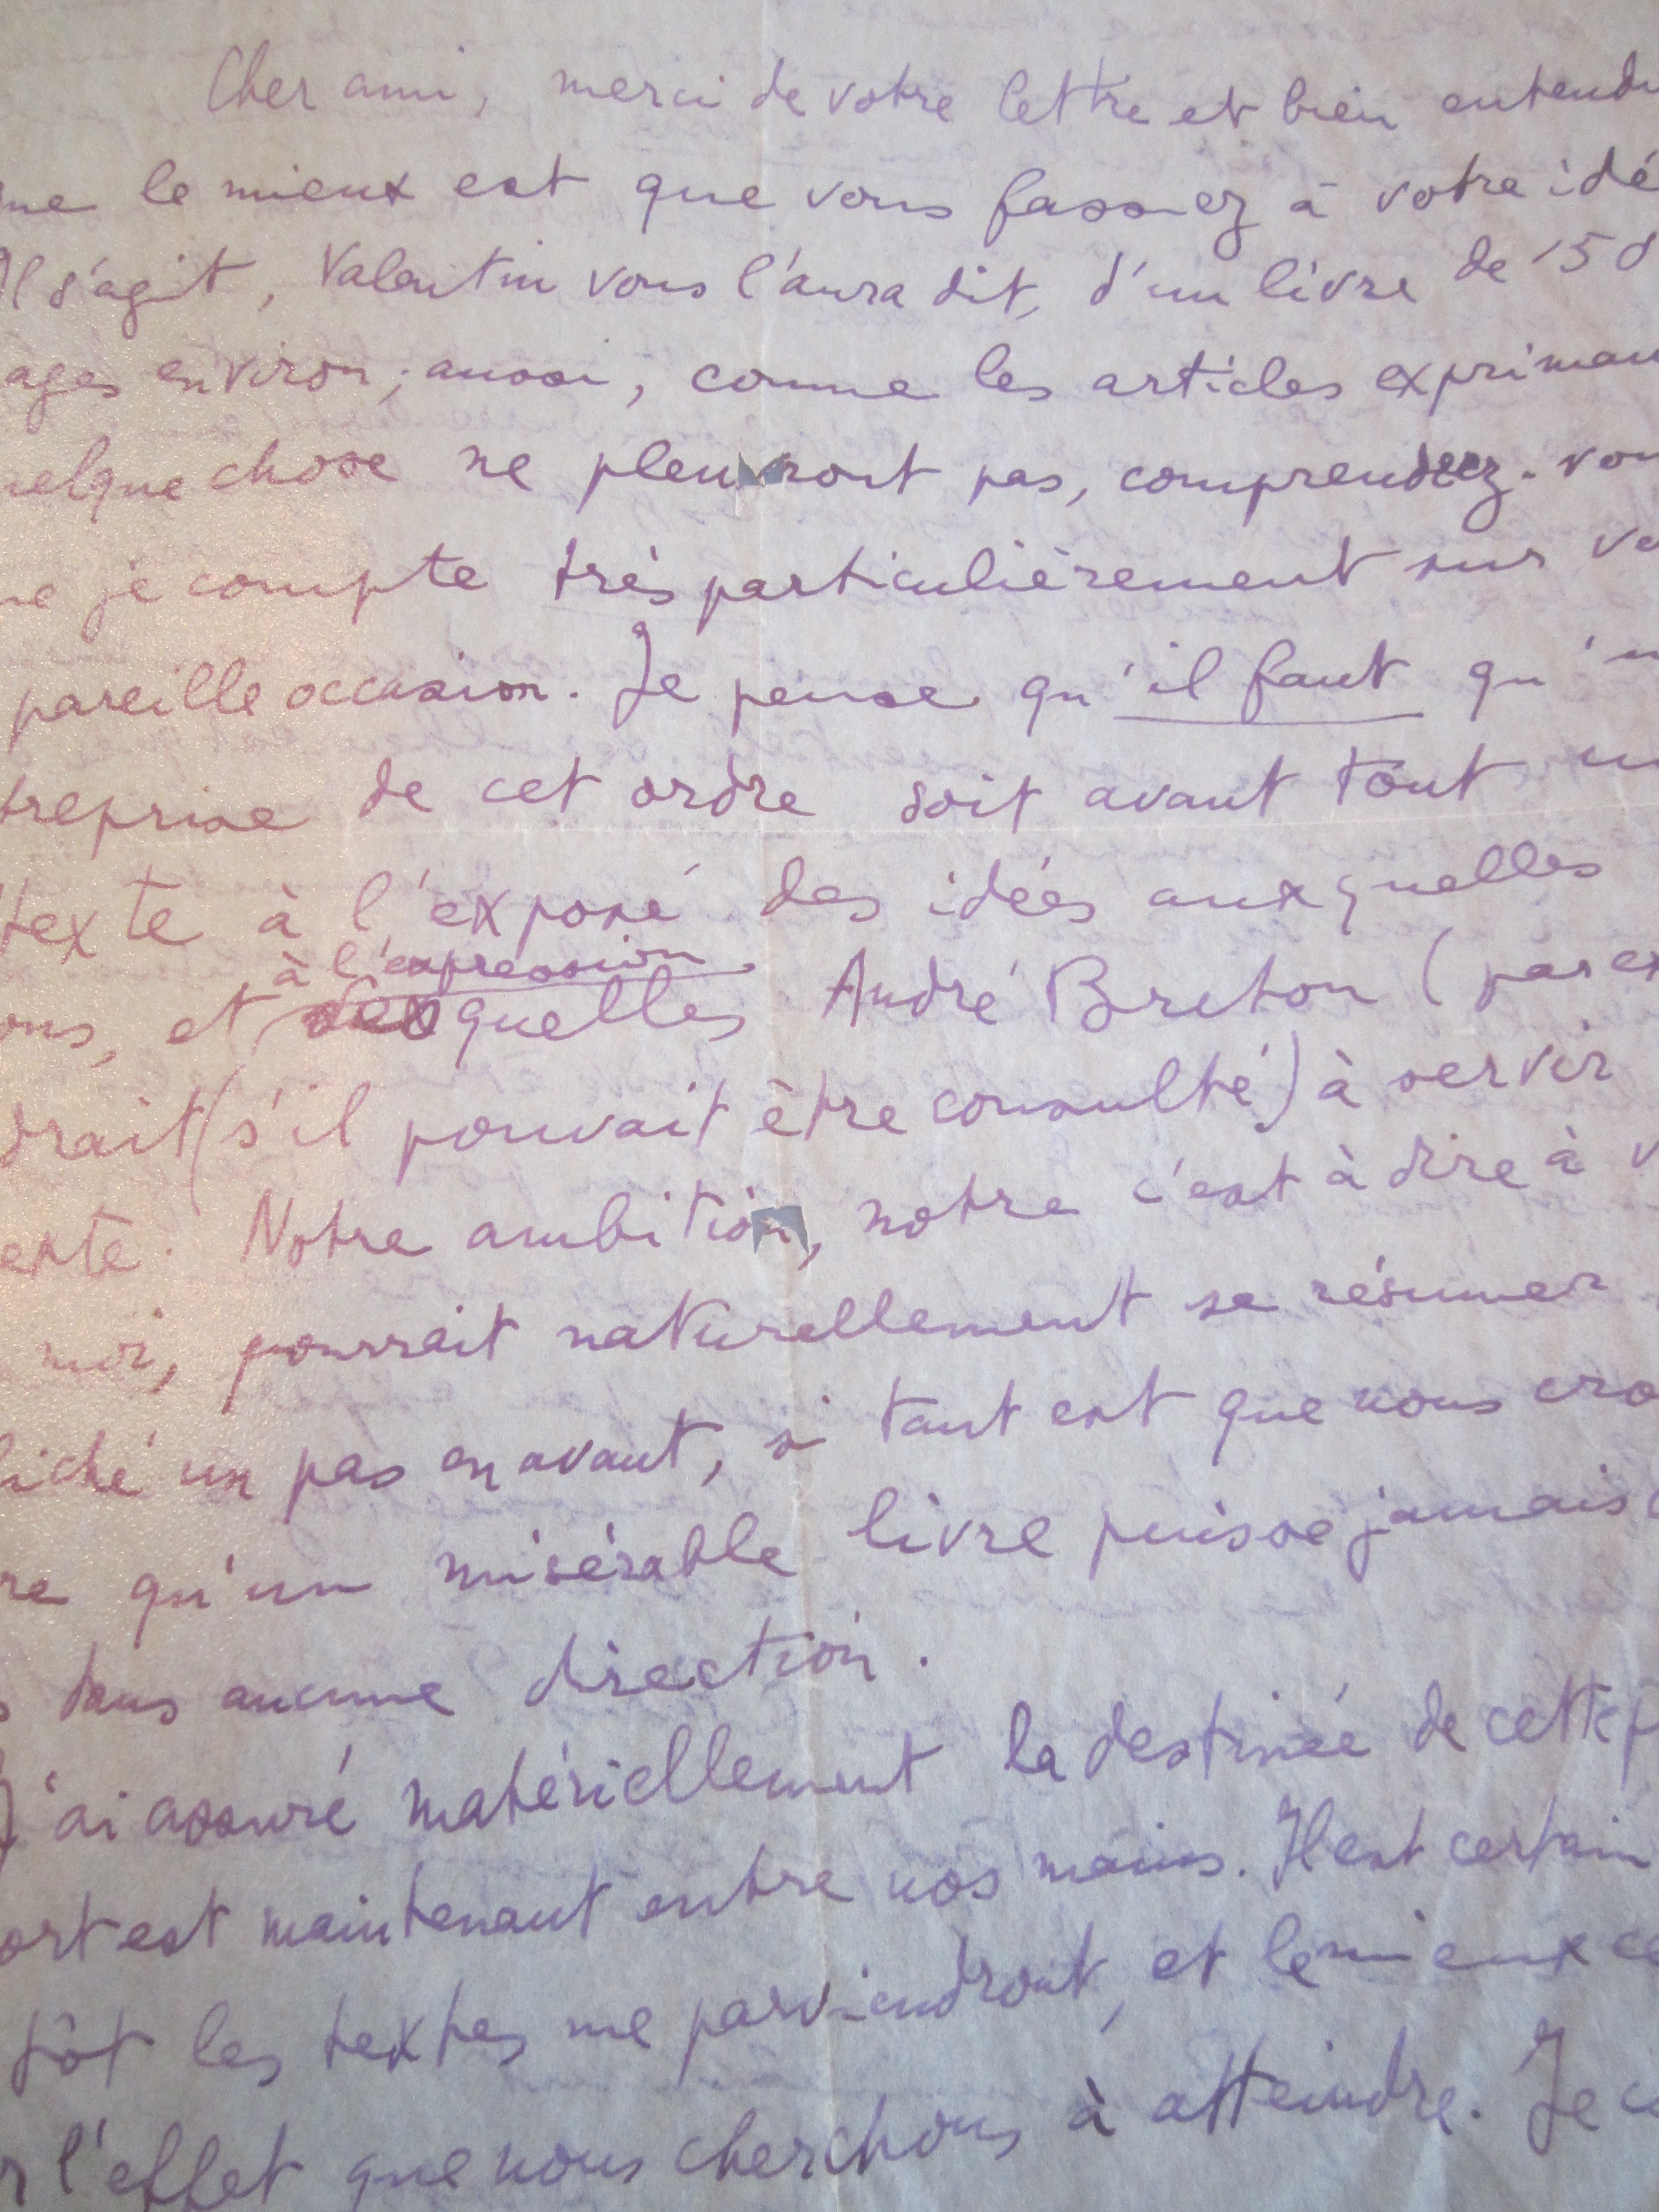 Cher ami, merci de votre lettre et bien entendu
ue le mieux est que vous fassiez à votre idé
Il s'agit, Valentin vous l'aura dit, d'un livre de 150
ages environ ; aussi, comme les articles expriman
uelque chose ne pleuvront pas, comprendrez-vou
ue je compte très particulièrement sur vo
pareille occasion. Je pense qu'il faut qu'u
treprise de cet ordre soit avant tout un
texte à l'exposé des idées auxquelles
à l'expression
ons, et desquelles André Breton (par ex
drait (s'il pouvait être consulté) à servir
exte. Notre ambition, notre c'est à dire à v
moi, pourrait naturellement se résumer
liché un pas en avant, si tant est que nous cro
re qu'un misérable livre puisse jamais
s dans aucune direction.
J'ai assuré matériellement la destinée de cette p
ort est maintenant entre nos mains. Il est certain
tôt les textes me parviendront, et le mieux ce
r l'effet que nous cherchons à atteindre. Je c